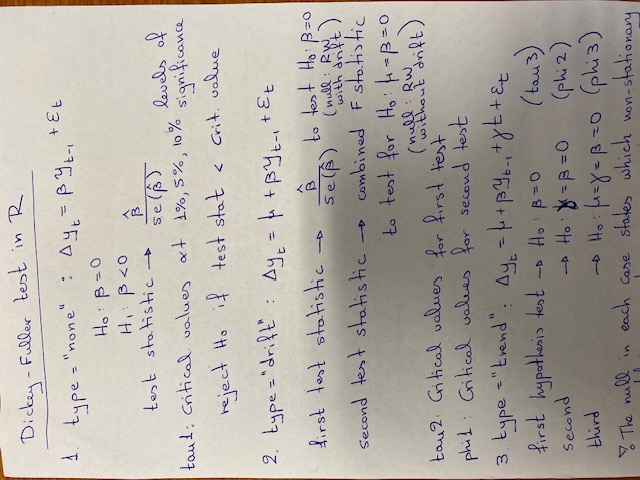 Dickey-Fuller test in R
1. type="none" : Δyₜ = βyₜ₋₁ + εₜ
H₀: β=0
H₁: β<0
test statistic → β̂ / se(β̂)
tau1: critical values at 1%, 5%, 10% levels of significance
reject H₀ if test stat < crit. value
2. type="drift" : Δyₜ = μ + βyₜ₋₁ + εₜ
first test statistic → β̂ / se(β̂) to test H₀: β=0 (null: RW with drift)
second test statistic → combined F statistic
to test for H₀: μ=β=0 (null: RW without drift)
tau2: critical values for first test
phi1: critical values for second test
3. type="trend": Δyₜ = μ+βyₜ₋₁+γt+εₜ
first hypothesis test → H₀: β=0 (tau3)
second → H₀: γ=β=0 (phi2)
third → H₀: μ=γ=β=0 (phi3)
The null in each case states which non-stationary